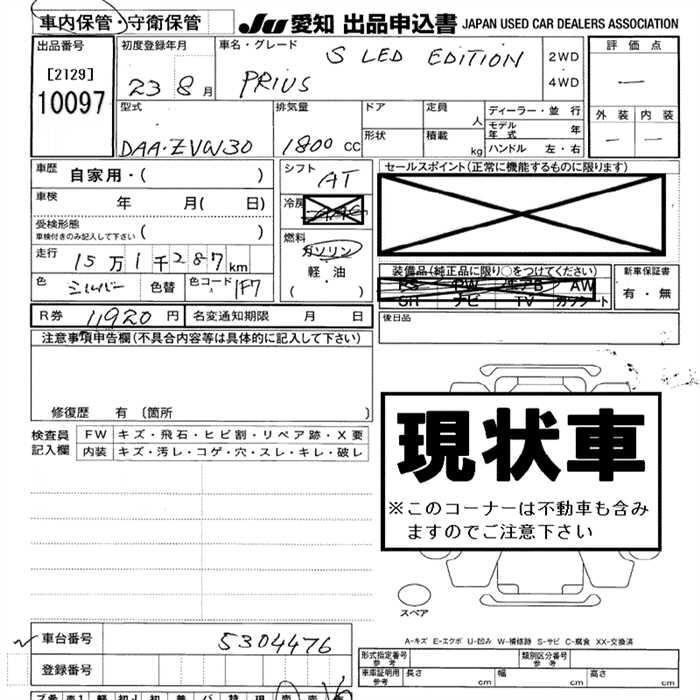 車内保管・守衛保管 JU 愛知 出品申込書 JAPAN USED CAR DEALERS ASSOCIATION
出品番号 [2129] 10097
初度登録年月 23 8月
車名・グレード S LED EDITION PRIUS
2WD
4WD
評価点 —
外装 内装
— —
型式 DAA-ZVW30
排気量 1800 CC
ドア 定員 人
形状 積載 kg
ディーラー・並行
モデル年式 年
ハンドル 左・右
車歴 自家用・( )
車検 年 月( 日)
受検形態 ( )
車検付きのみ記入して下さい
走行 15万1千287km
色 シルバー 色替 色コード 1F7
シフト AT
冷房
燃料 ガソリン
軽・油
( )
セールスポイント(正常に機能するものに限ります)
装備品(純正品に限り○をつけてください)
PS PW エアB AW
GH ナビ TV カセット
新車保証書
有・無
R券 11920円 名変通知期限 月 日
後日品
注意事項申告欄(不具合内容等は具体的に記入して下さい)
修復歴 有〔箇所 〕
検査員記入欄 FW キズ・飛石・ヒビ割・リペア跡・X要
内装 キズ・汚レ・コゲ・穴・スレ・キレ・破レ
現状車
※このコーナーは不動車も含み
ますのでご注意下さい
スペア
A-キズ E-エクボ U-凹み W-補修跡 S-サビ C-腐食 XX-交換済
車台番号 5304476
登録番号
形式指定番号 参考 類別区分番号 参考
車庫証明用 参考 長さ cm 幅 cm 高さ cm